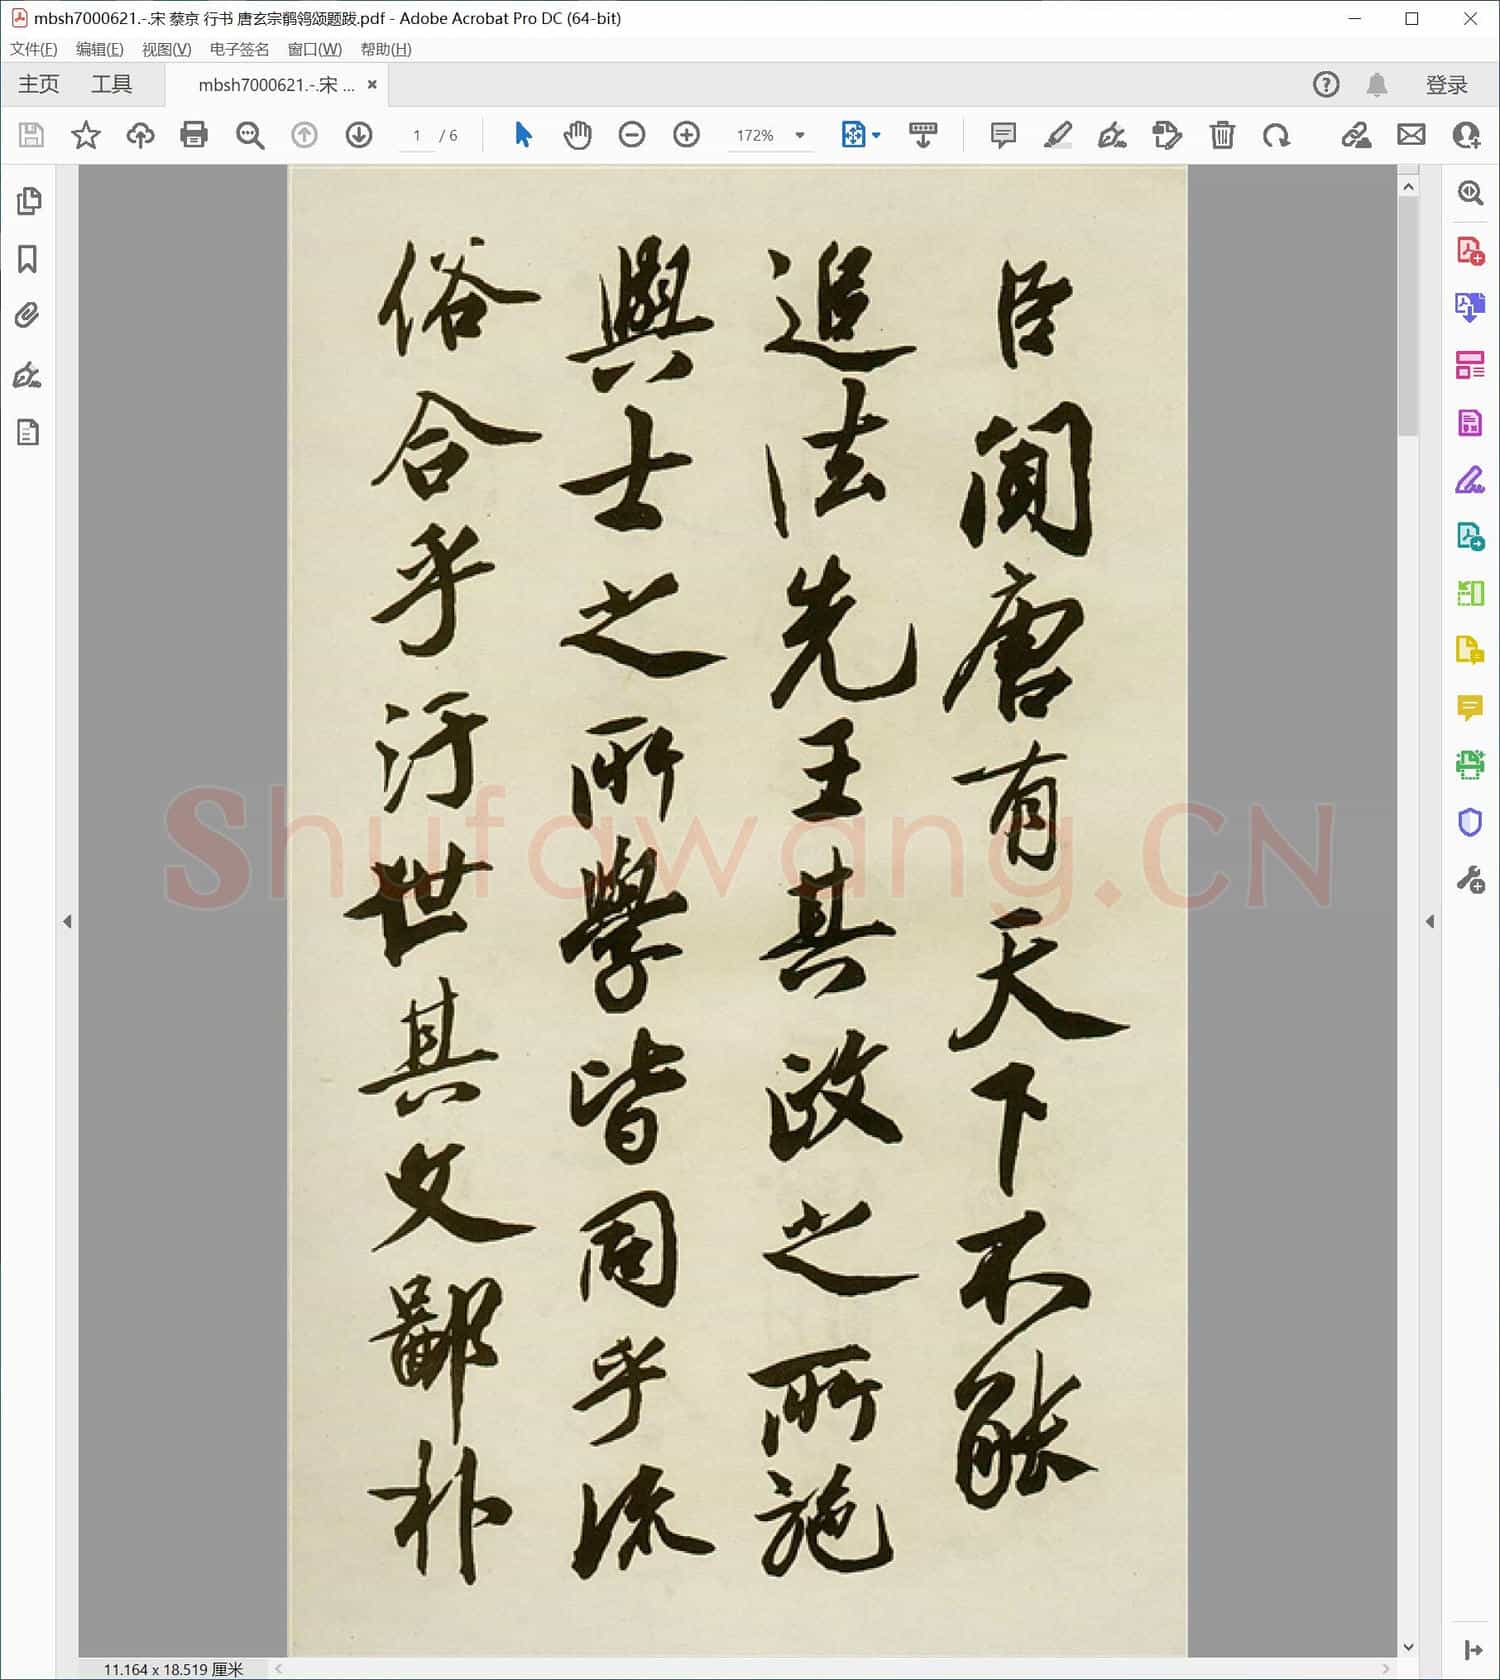 mbsh7000621.-.宋 蔡京 行书 唐玄宗鹡鸰颂题跋.pdf - Adobe Acrobat Pro DC (64-bit)
文件(F) 编辑(E) 视图(V) 电子签名 窗口(W) 帮助(H)
主页 工具 mbsh7000621.-.宋 ... × 登录
1 / 6 172%
臣闻唐有天下不能
追法先王其政之所施
與士之所學皆同乎流
俗合乎汙世其文鄙朴
Shufawang.CN
11.164 x 18.519 厘米